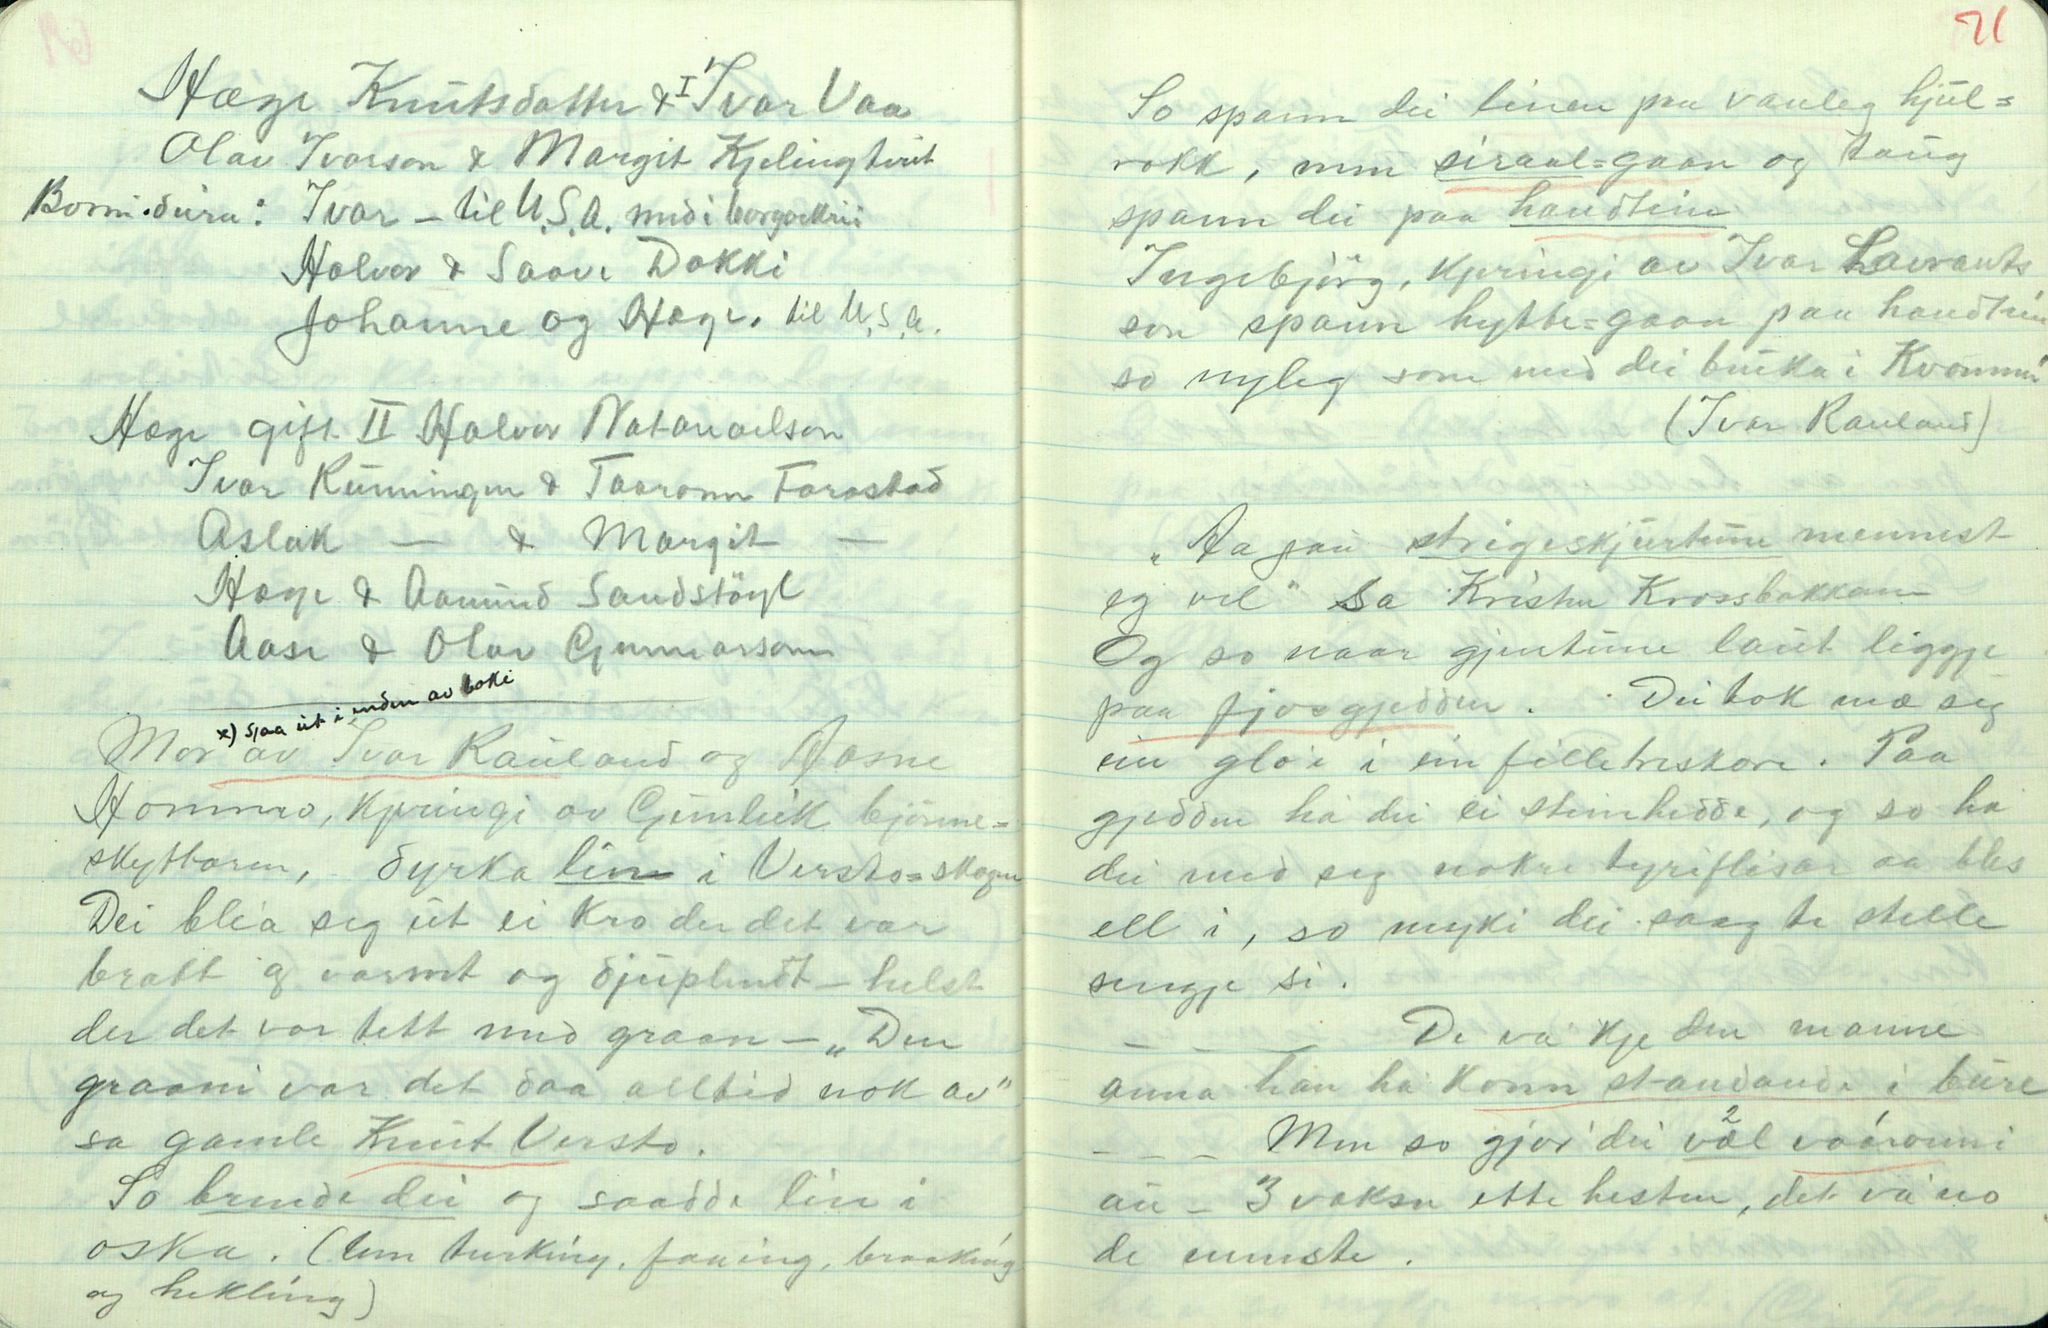 Hæge Knutsdatter & I Ivar Vaa
Olav Ivarson & Margit Kjelingtveit
Borni deira: Ivar – til U.S.A. med i borgarkrii
Halvor & Saave Dokki
Johanne og Hæge, til U.S.A.
Hæge gift II Halvor Natanaelson
Ivar Runningen & Taaronn Farastad
Aslak — & Margit —
Hæge & Aamund Sandstöyl
Aase & Olav Gunnarson
x) sjaa ut i enden av boki
Mor av Ivar Rauland og Aasne
Hommo, kjeringi av Gunleik björne=
skyttaren, dyrka lin i Versto=skogen
Dei blea seg ut ei kro der det var
bratt og varmt og djuplendt – helst
der det var tett med graan – „Den
graani var det daa alltid nok av"
sa gamle Knut Versto.
So brende dei og saadde lin i
oska. (Um turking, faaing, braaking
og hekling)
71
So spann dei linen paa vanleg hjul=
rokk, men siraal=gaan og taug
spann dei paa handtein
Ingebjörg, kjeringi av Ivar Lavrants
son spann hytte=gaan paa handtein
so nyleg som med dei buka i Kvammen
(Ivar Rauland)
„Aa jau strigeskjurtune mennest
eg vel" sa Kristen Krossbakkan
Og so naar gjentune laut liggje
paa fjosgjedden. Dei tok mæ seg
ein glo i ein filletreskore. Paa
gjedden ha dei ei steinhedde, og so ha
dei med seg nokre tyriflisar aa bles
ell i, so myki dei saag te stelle
sengje si.
– – – De va kje den manne
anna han ha konn standande i bure
– – – Men so gjor' dei væl 2 vaáronni
au – 3 vaksn ette hesten, det va no
de minste.